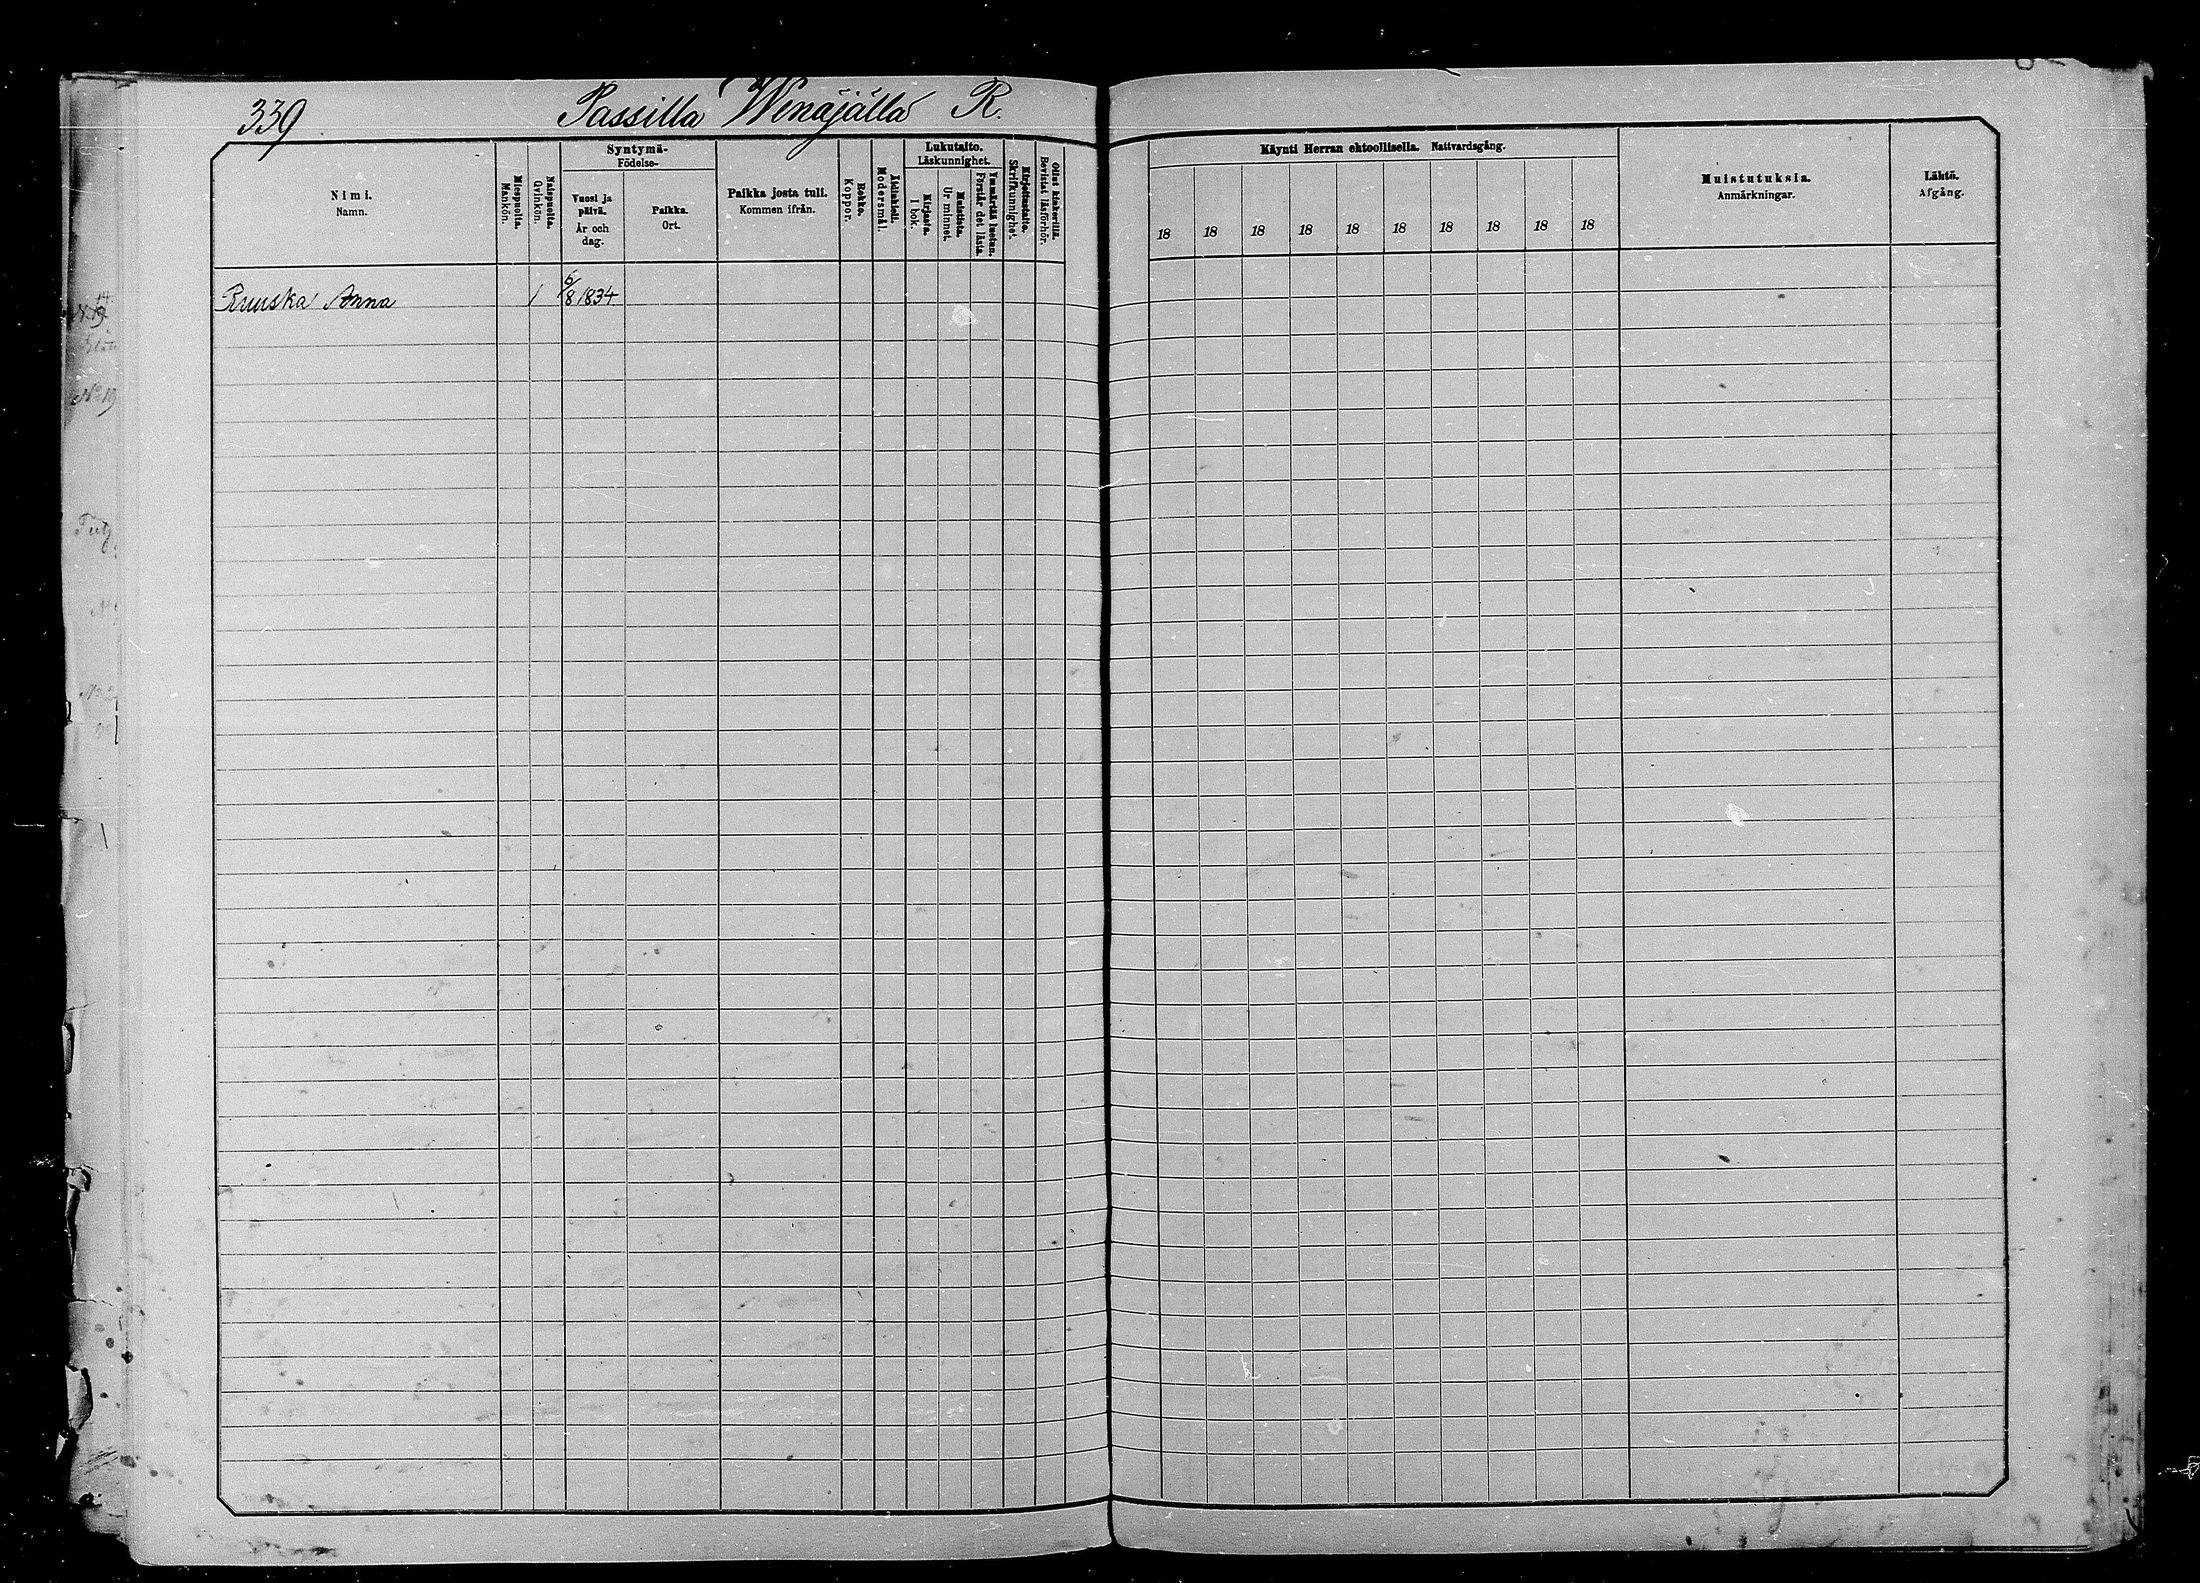 339
Passilla Wenäjällä R.
Nimi.
Namn.
Miespuolta.
Mankön.
Naispuolta.
Qvinkön.
Syntymä-
Födelse-
Vuosi ja
päivä.
År och
dag.
Paikka.
Ort.
Paikka josta tuli.
Kommen ifrån.
Rokko.
Koppor.
Äidinkieli.
Modersmål.
Lukutaito.
Läskunnighet.
Kirjasta.
I bok.
Muistista.
Ur minnet.
Ymmärtää luetun.
Förstår det lästa.
Kirjoitustaito.
Skrifkunnighet.
Ollut kinkerillä.
Bevistat läsförhör.
Käynti Herran ehtoollisella. Nattvardsgång.
18 18 18 18 18 18 18 18 18 18
Muistutuksia.
Anmärkningar.
Lähtö.
Afgång.
Ruuska Anna 1 6/8 1834
No 19